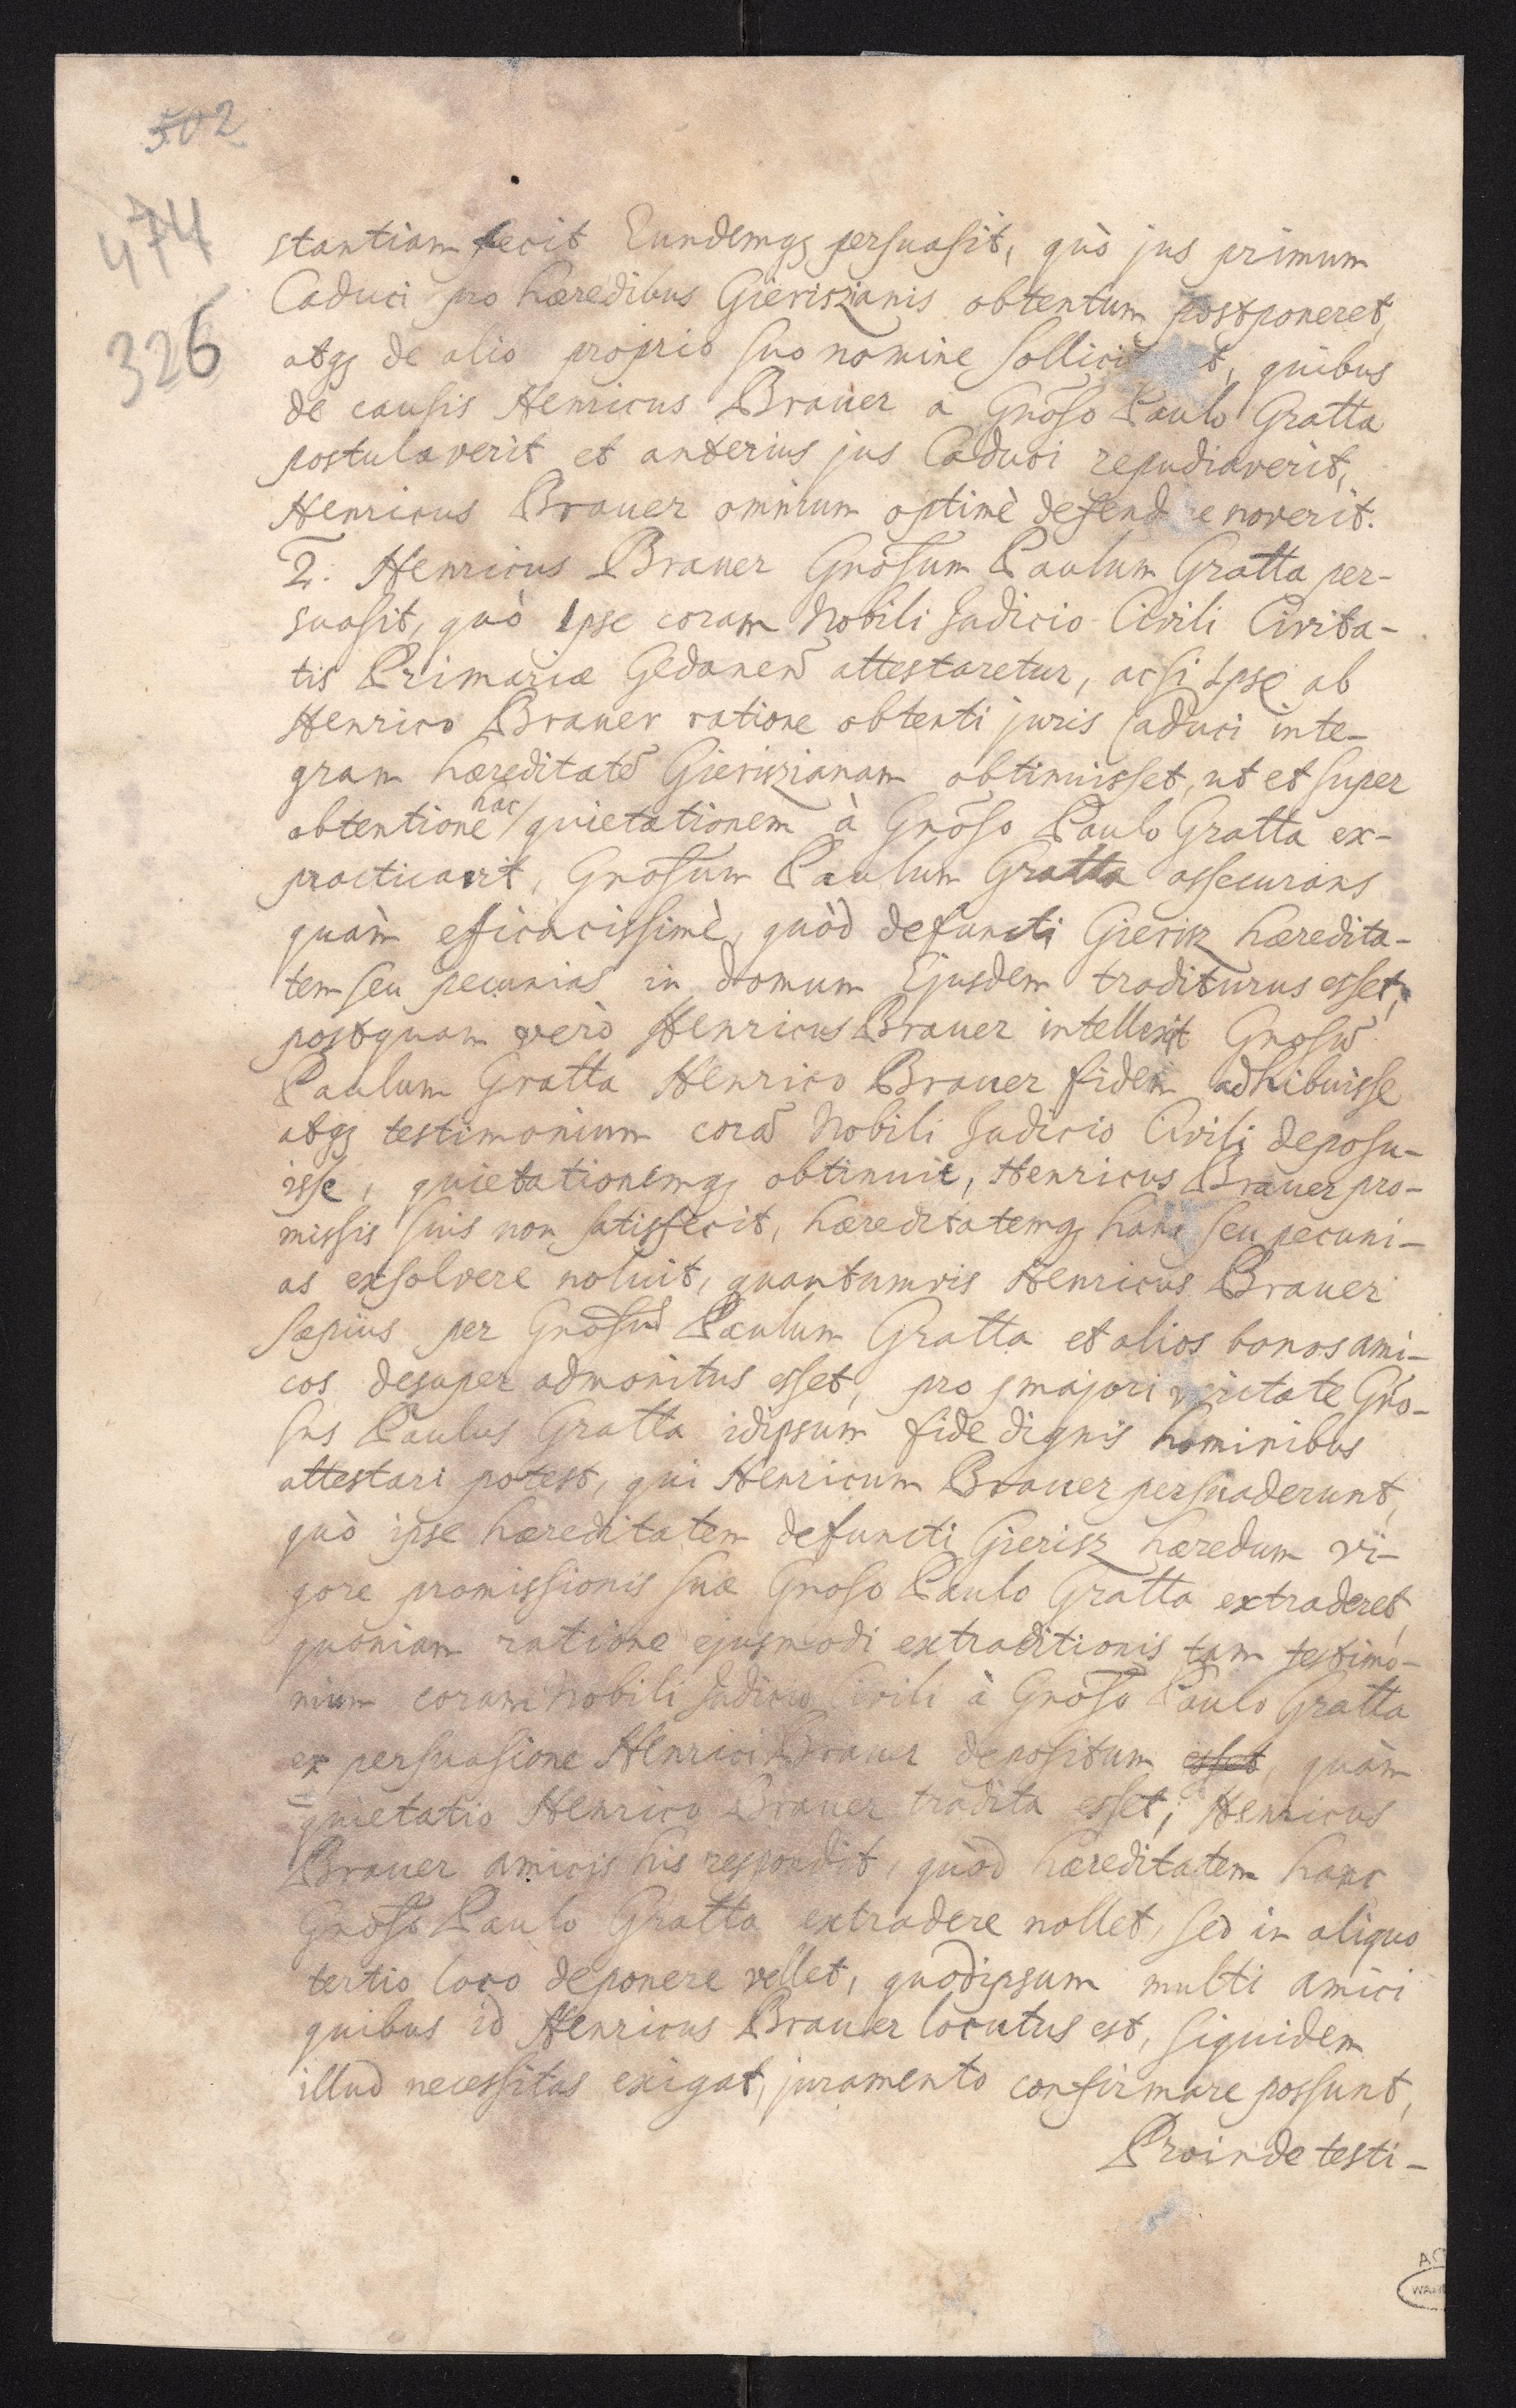 502
474
326
stantiam fecit Eundemq₃ persuasit, quò jus primum
Caduci pro hæredibus Gieriszianis obtentum postponeret,
atq₃ de alio proprio suo nomine sollici t, quibus
de causis Henricus Brauer a Gnõso Paulo Gratta
postulaverit et anterius jus Caduci repudiaverit,
Henricus Brauer omnium optimè defend e noverit.
2. Henricus Brauer Gnõsum Paulum Gratta per-
suasit, quò Ipse coram Nobili Judicio Civili Civita-
tis Primariæ Gedanen̄ attestaretur, acsi Ipse ab
Henrico Brauer ratione obtenti juris Caduci inte-
gram hæreditatē Gieriszianam obtinuisset, ut et super
obtentione hac quietationem à Gnõso Paulo Gratta ex-
practicavit, Gnosum Paulum Gratta assecurans
quàm eficacissimè, quòd defuncti Gierisz hæredita-
tem seu pecunias in domum Ejusdem traditurus esset,
postquam verò Henricus Brauer intellexit Gnosū
Paulum Gratta Henrico Brauer fidem adhibuisse
atq₃ testimonium corā Nobili Judicio Civili deposu-
isse, quietationemq₃ obtinuit, Henricus Brauer pro-
missis suis non satisfecit, hæreditatemq₃ hanc seu pecuni-
as exsolvere noluit, quantumvis Henricus Brauer
sæpius per Gnõsū Paulum Gratta et alios bonos ami-
cos desuper admonitus esset, pro majori veritate Gño-
sus Paulus Gratta idipsum fide dignis hominibus
attestari potest, qui Henricum Brauer persuaderunt,
quò ipse hæreditatem defuncti Gierisz hæredum vi-
gore promissionis suæ Gnoso Paulo Gratta extraderet,
quoniam ratione ejusmodi extraditionis tam testimo-
nium coram Nobili Judicio Civili à Gnõso Paulo Gratta
ex persuasione Henrici Brauer depositum esset, quàm
quietatio Henrico Brauer tradita esset; Henricus
Brauer amicis his respondit, quòd hæreditatem hanc
Gnõso Paulo Gratta extradere nollet, sed in aliquo
tertio loco deponere vellet, quodipsum multi amici
quibus id Henricus Brauer locutus est, siquidem
illud necessitas exigat, juramento confirmare possunt,
Proinde testi-